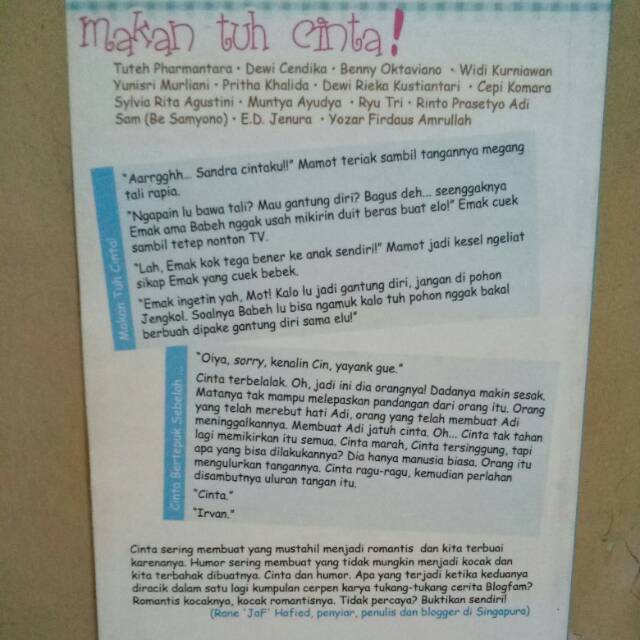 makan tuh cinta!
Tuteh Pharmantara • Dewi Cendika • Benny Oktaviano • Widi Kurniawan
Yunisri Murliani • Pritha Khalida • Dewi Rieka Kustiantari • Cepi Komara
Sylvia Rita Agustini • Muntya Ayudya • Ryu Tri • Rinto Prasetyo Adi
Sam (Be Samyono) • E.D. Jenura • Yozar Firdaus Amrullah
Makan Tuh Cinta!
"Aarrgghh... Sandra cintaku!!" Mamot teriak sambil tangannya megang
tali rapia.
"Ngapain lu bawa tali? Mau gantung diri? Bagus deh... seenggaknya
Emak ama Babeh nggak usah mikirin duit beras buat elo!" Emak cuek
sambil tetep nonton TV.
"Lah, Emak kok tega bener ke anak sendiri!" Mamot jadi kesel ngeliat
sikap Emak yang cuek bebek.
"Emak ingetin yah, Mot! Kalo lu jadi gantung diri, jangan di pohon
Jengkol. Soalnya Babeh lu bisa ngamuk kalo tuh pohon nggak bakal
berbuah dipake gantung diri sama elu!"
Cinta Bertepuk Sebelah ...
"Oiya, sorry, kenalin Cin, yayank gue."
Cinta terbelalak. Oh, jadi ini dia orangnya! Dadanya makin sesak.
Matanya tak mampu melepaskan pandangan dari orang itu. Orang
yang telah merebut hati Adi, orang yang telah membuat Adi
meninggalkannya. Membuat Adi jatuh cinta. Oh... Cinta tak tahan
lagi memikirkan itu semua. Cinta marah, Cinta tersinggung, tapi
apa yang bisa dilakukannya? Dia hanya manusia biasa. Orang itu
mengulurkan tangannya. Cinta ragu-ragu, kemudian perlahan
disambutnya uluran tangan itu.
"Cinta."
"Irvan."
Cinta sering membuat yang mustahil menjadi romantis dan kita terbuai
karenanya. Humor sering membuat yang tidak mungkin menjadi kocak dan
kita terbahak dibuatnya. Cinta dan humor. Apa yang terjadi ketika keduanya
diracik dalam satu lagi kumpulan cerpen karya tukang-tukang cerita Blogfam?
Romantis kocaknya, kocak romantisnya. Tidak percaya? Buktikan sendiri!
(Rane 'JaF' Hafied, penyiar, penulis dan blogger di Singapura)